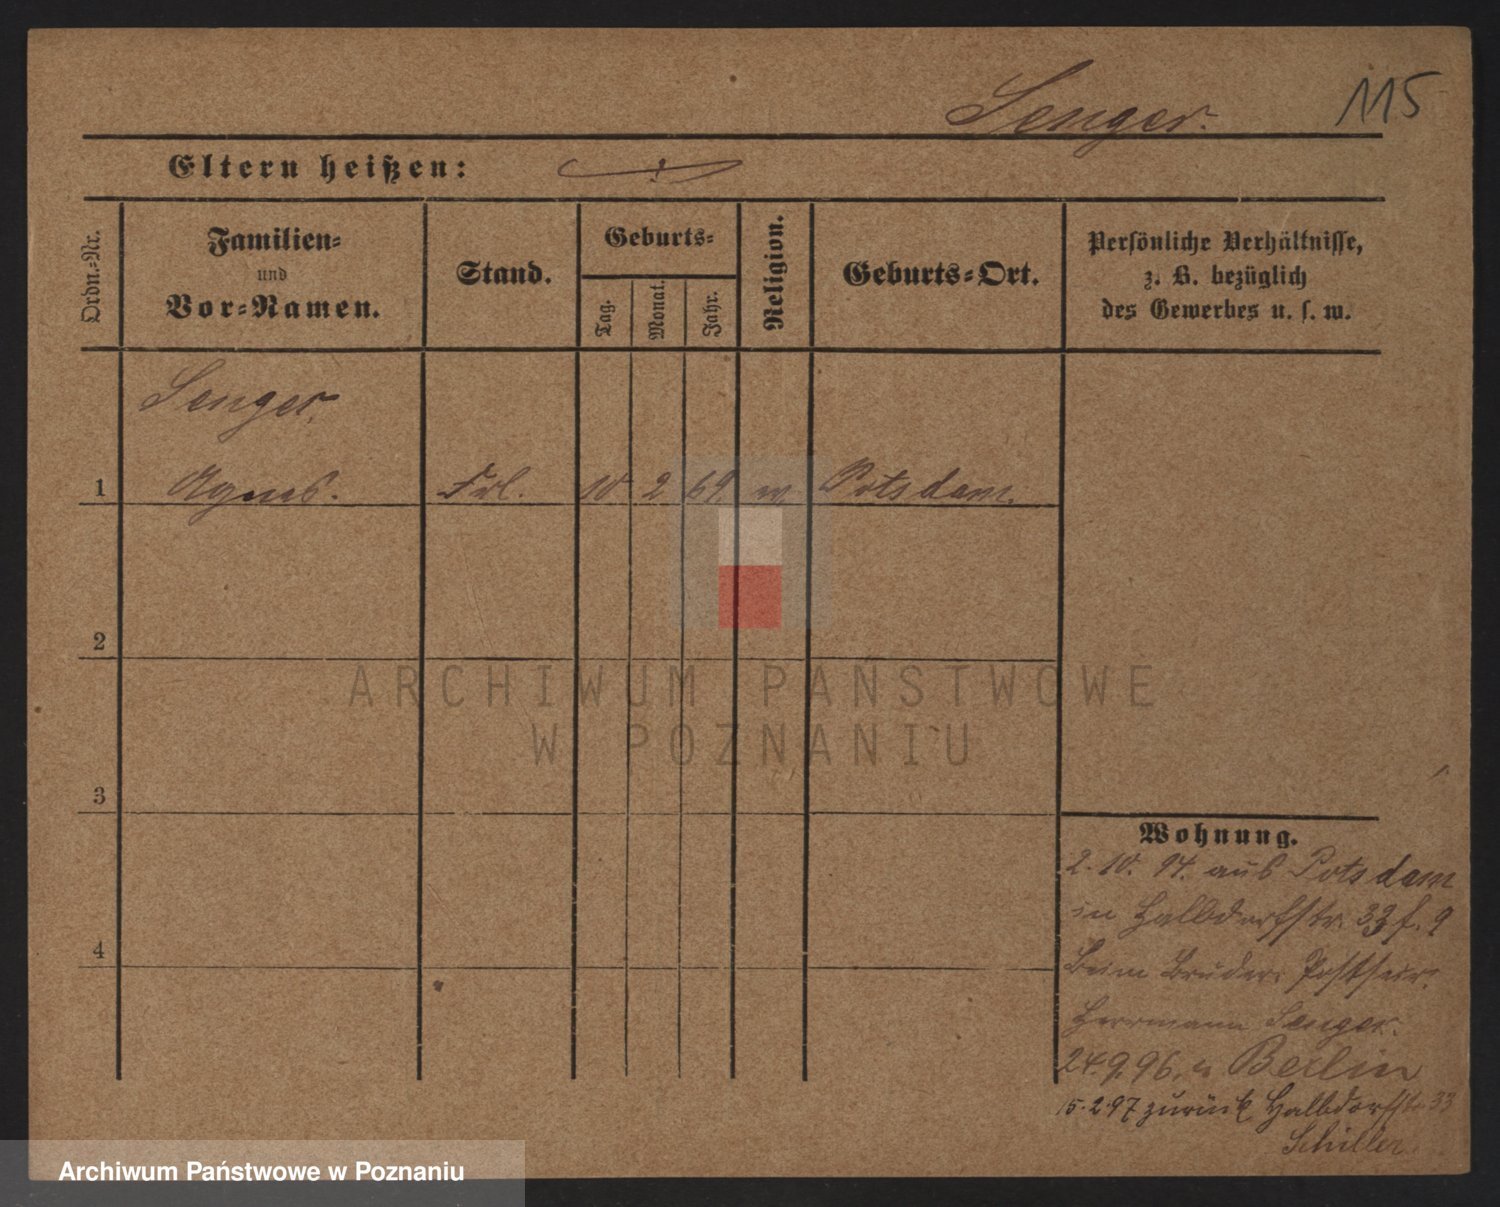 Senger.
115
Eltern heißen:
Ordn.-Nr.
Familien-
und
Vor-Namen.
Stand.
Geburts-
Tag.
Monat.
Jahr.
Religion.
Geburts-Ort.
Persönliche Verhältnisse,
z. B. bezüglich
des Gewerbes u. s. w.
Senger,
1 Agnes. Frl. 10 2 69 Potsdam.
2
3
4
ARCHIWUM PAŃSTWOWE
W POZNANIU
Wohnung.
2. 10. 94. aus Potsdam
in Halbdorfstr. 33 9
Beim Bruder
Herrmann Senger.
24.9.96. Berlin
15.2.97 zurück Halbdorfstr 33
Schiller
Archiwum Państwowe w Poznaniu